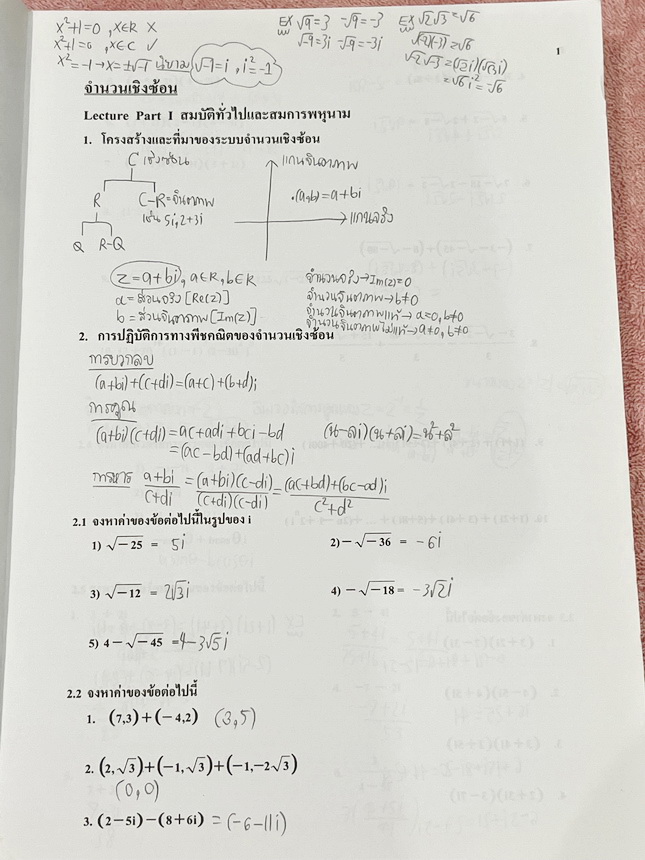 x²+1=0 , x∈R ✗
x²+1=0 , x∈C ✓
x²=-1→x=±√-1 นิยาม √-1=i , i²=-1
EX √9=3 -√9=-3
√-9=3i -√-9=-3i
EX √2√3=√6
√(-2)(-3)=√6
√-2√-3=(√2i)(√3i)
=√6i²=-√6
1
จำนวนเชิงซ้อน
Lecture Part I สมบัติทั่วไปและสมการพหุนาม
1. โครงสร้างและที่มาของระบบจำนวนเชิงซ้อน
C เชิงซ้อน
R C-R=จินตภาพ
เช่น 5i,2+3i
Q R-Q
แกนจินตภาพ
(a,b)=a+bi
แกนจริง
z=a+bi, a∈R, b∈R
a=ส่วนจริง [Re(z)]
b=ส่วนจินตภาพ [Im(z)]
จำนวนจริง→Im(z)=0
จำนวนจินตภาพ→b≠0
จำนวนจินตภาพแท้→a=0, b≠0
จำนวนจินตภาพไม่แท้→a≠0, b≠0
2. การปฏิบัติการทางพีชคณิตของจำนวนเชิงซ้อน
การบวกลบ
(a+bi)+(c+di)=(a+c)+(b+d)i
การคูณ
(a+bi)(c+di)=ac+adi+bci-bd
=(ac-bd)+(ad+bc)i
(น-ลi)(น+ลi)=น²+ล²
การหาร a+bi/c+di = (a+bi)(c-di)/(c+di)(c-di) = (ac+bd)+(bc-ad)i/c²+d²
2.1 จงหาค่าของข้อต่อไปนี้ในรูปของ i
1) √-25 = 5i
2) -√-36 = -6i
3) √-12 = 2√3i
4) -√-18 = -3√2i
5) 4-√-45 =4-3√5i
2.2 จงหาค่าของข้อต่อไปนี้
1. (7,3)+(-4,2) (3,5)
2. (2,√3)+(-1,√3)+(-1,-2√3)
(0,0)
3. (2-5i)-(8+6i) =(-6-11i)